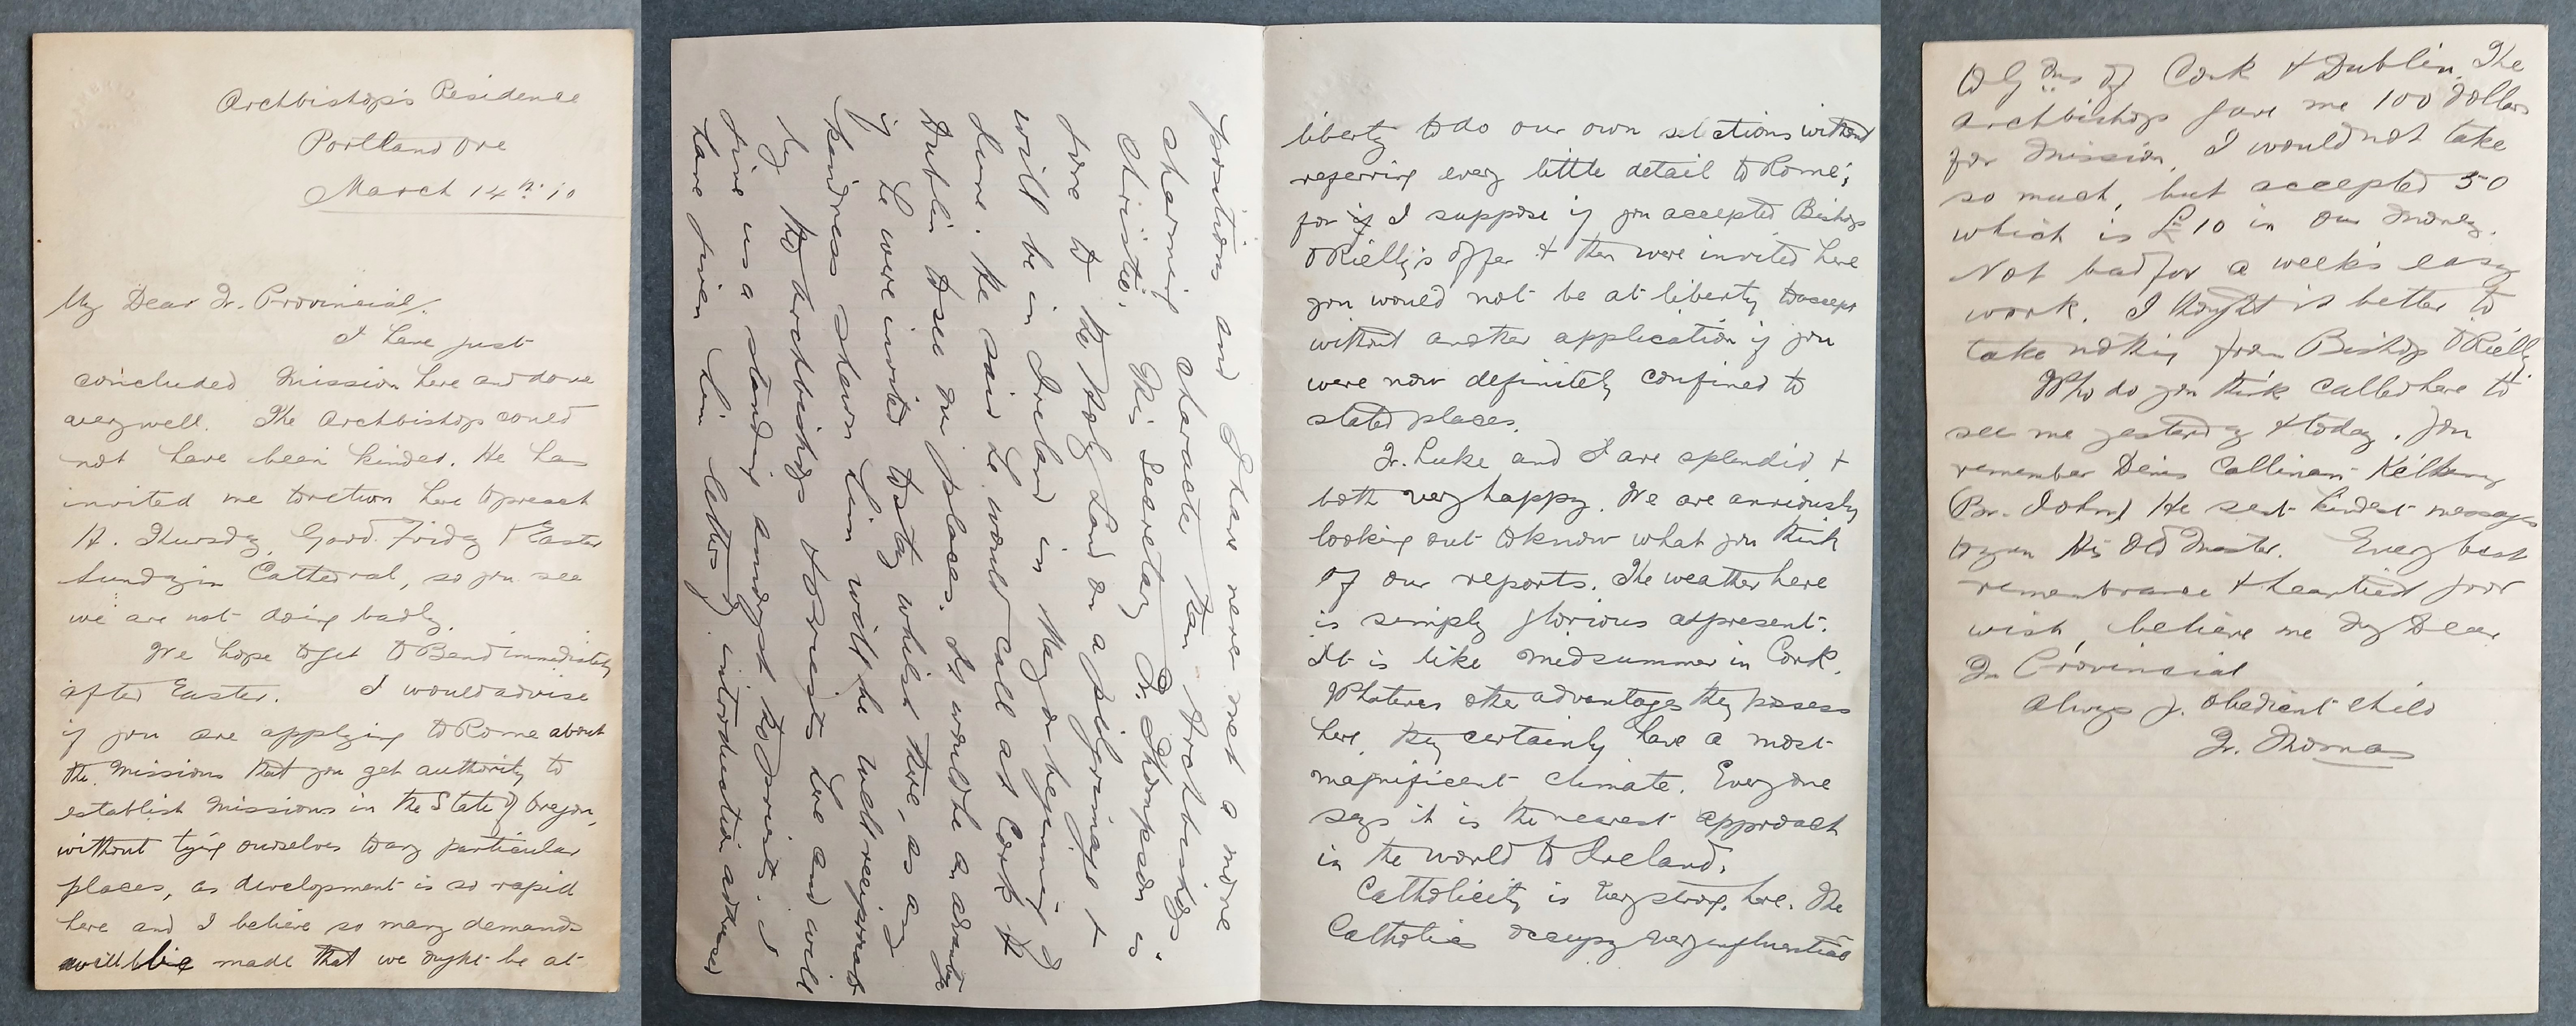 Archbishop's Residence
Portland Ore
March 14th. 10
My Dear Fr. Provincial,
I have just
concluded Mission here and done
very well. The Archbishop could
not have been kinder. He has
invited me to return here to preach
H. Thursday, Good Friday & Easter
Sunday in Cathedral, so you see
we are not doing badly.
We hope to get to Bend immediately
after Easter. I would advise
if you are applying to Rome about
the Missions that you get authority to
establish Missions in the State of Oregon,
without tying ourselves to any particular
places, as development is so rapid
here and I believe so many demands
will be made that we ought be at
liberty to do our own selections without
referring every little detail to Rome;
for if I suppose if you accepted Bishop
O Rielly's offer & then were invited here
you would not be at liberty to accept
without another application if you
were now definitely confined to
stated places.
Fr. Luke and I are splendid &
both very happy. We are anxiously
looking out to know what you think
of our reports. The weather here
is simply glorious at present.
It is like midsummer in Cork.
Whatever other advantages they possess
here, they certainly have a most
magnificent climate. Everyone
says it is the nearest approach
in the world to Ireland.
Catholicity is very strong here. The
Catholics occupy very influential
positions and I have never met a more
charming character than Archbishop
Christie. His Secretary Dr. Thompson is
gone to the Holy Land on a pilgrimage &
will be in Ireland in May or beginning of
June. He said he would call at Cork &
Dublin to see our places. It would be an advantage
if he were invited to stay while there, as any
kindness shown him will be well reciprocated
by the Archbishop & Priests here and will
give us a standing amongst the priests. I
have given him letters of introduction addressed
to Gdns of Cork & Dublin. The
Archbishop gave me 100 dollars
for Mission. I would not take
so much, but accepted 50
which is £10 in our money.
Not bad for a week's easy
work. I thought it better to
take nothing from Bishop O Rielly.
Who do you think called here to
see me yesterday & today. You
remember Denis Callinan - Kilkenny
(Br. John) He sent kindest messages
to you his Old Master. Every best
remembrance & heartiest good
wish, believe me My Dear
Fr Provincial
Always yr. obedient child
Fr. Thomas